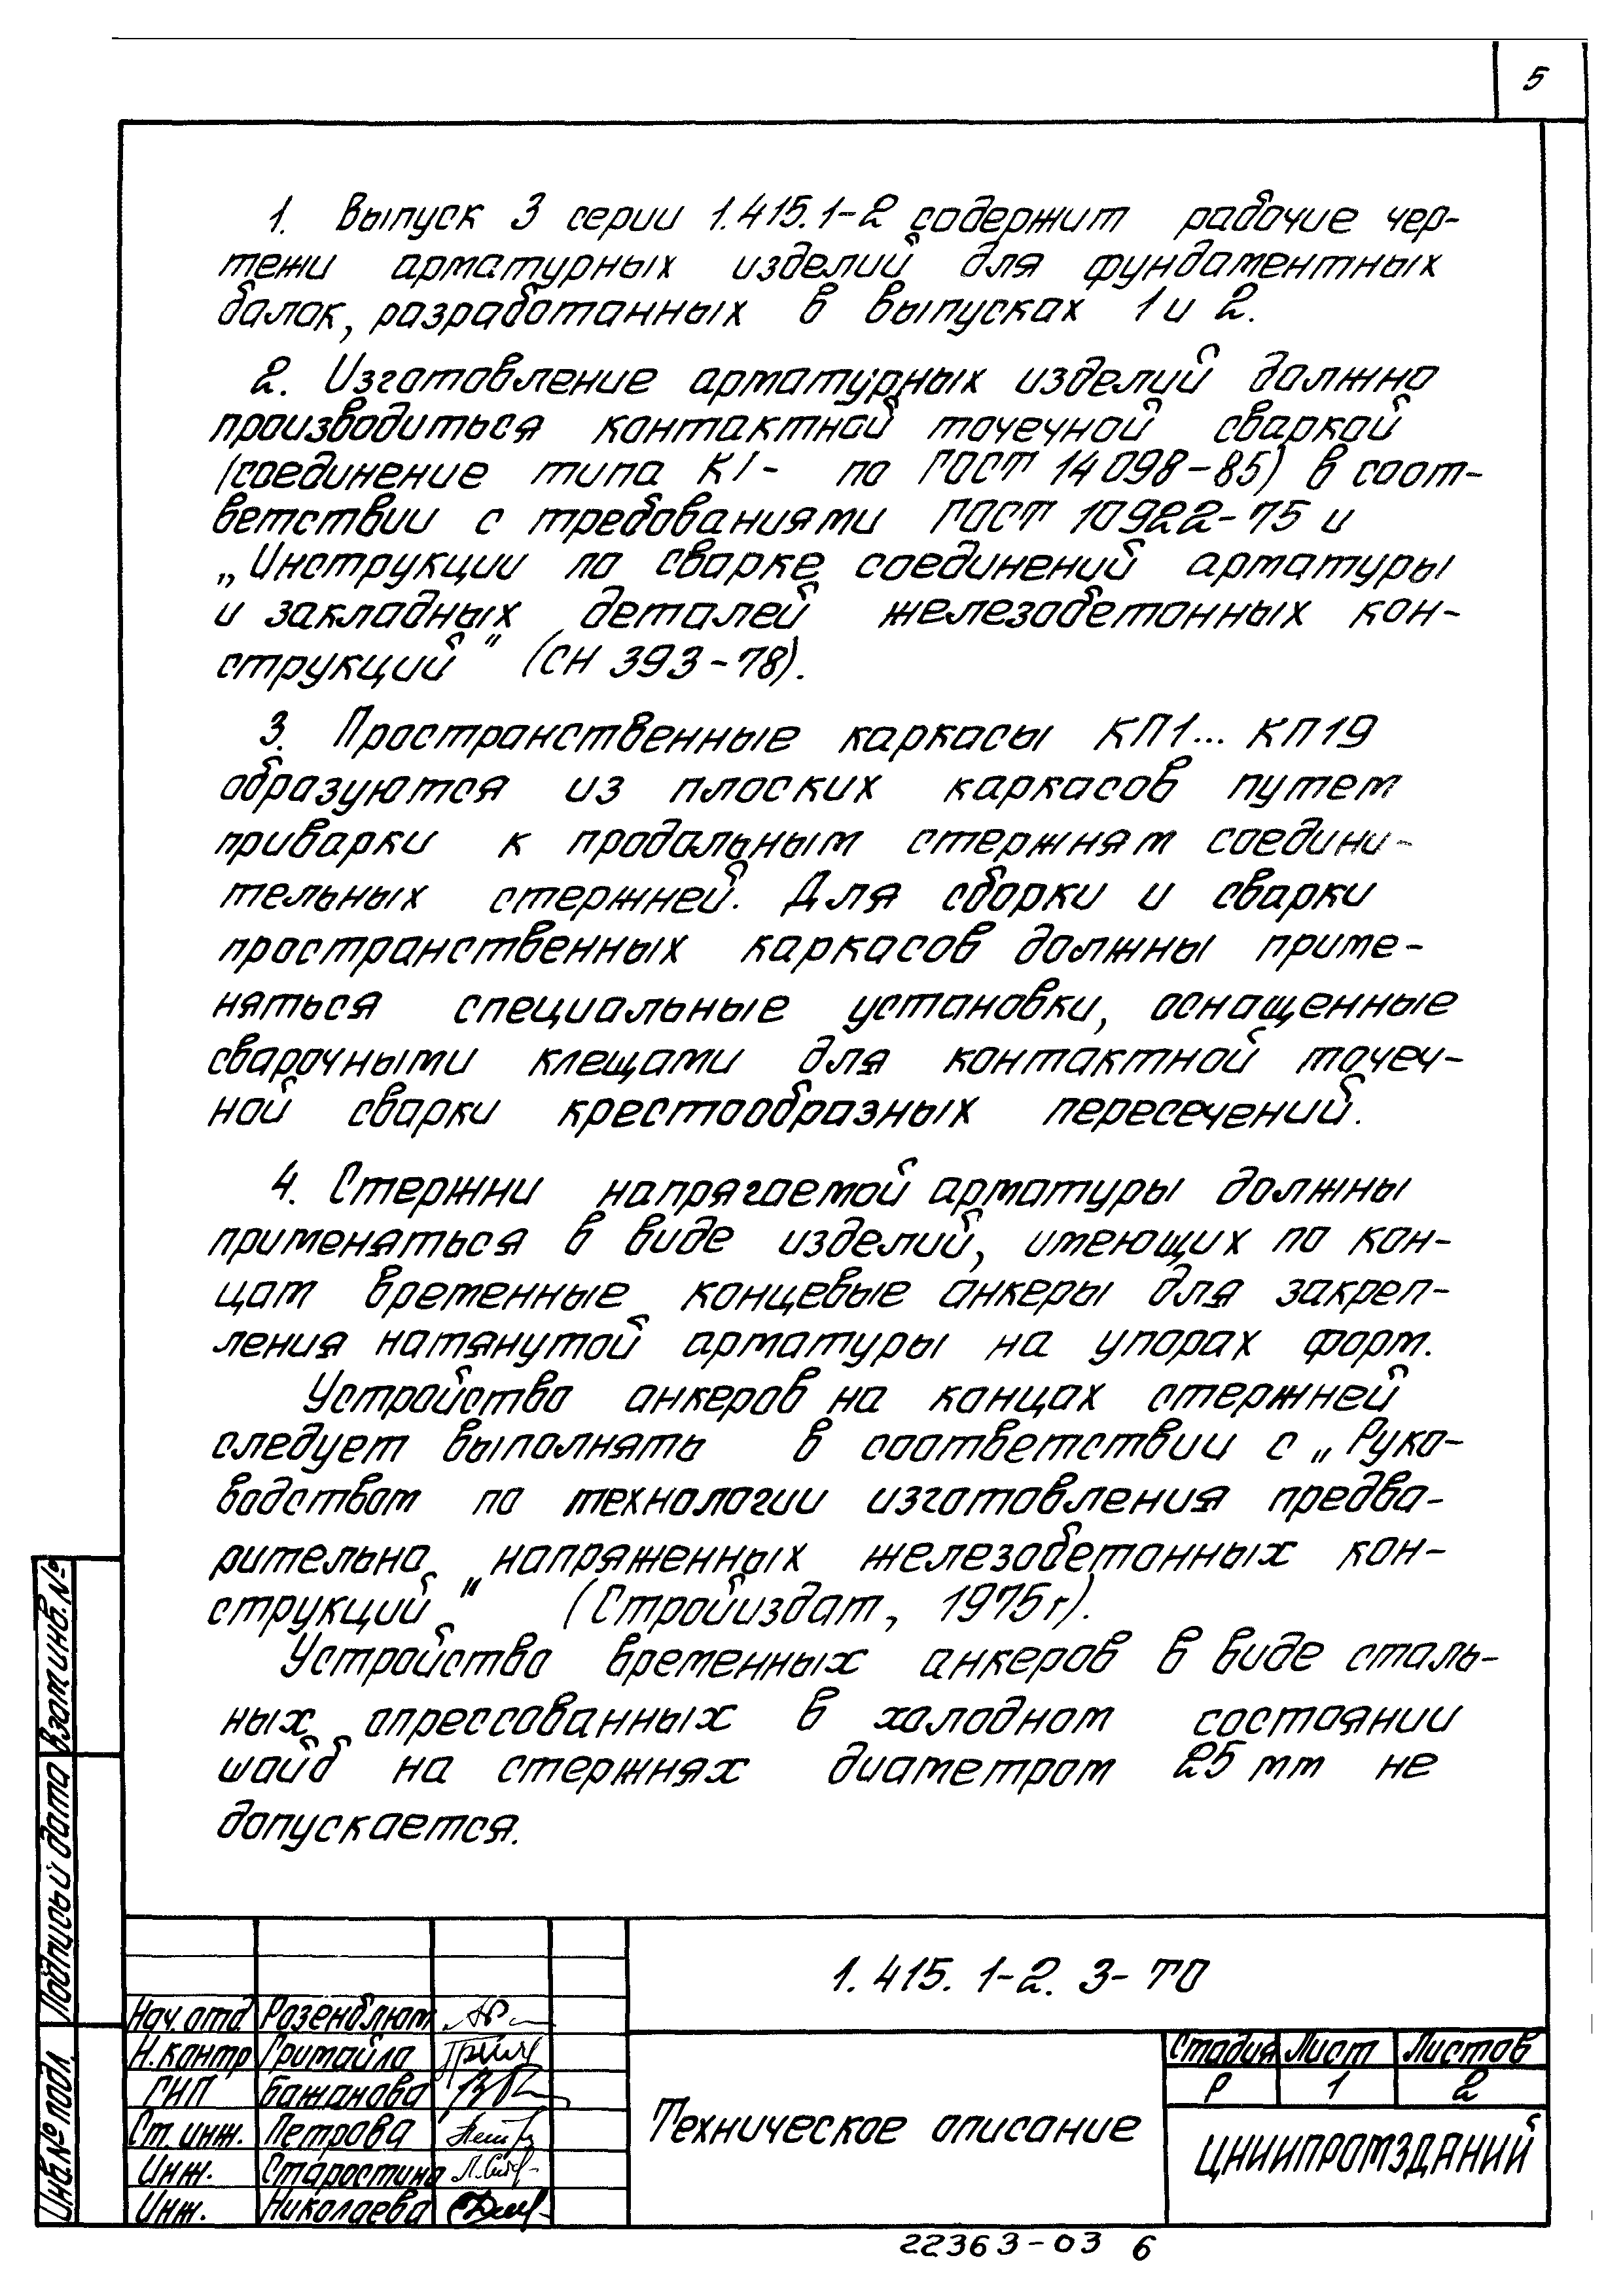 5
1. Выпуск 3 серии 1.415.1-2 содержит рабочие чер-
тежи арматурных изделий для фундаментных
балок, разработанных в выпусках 1 и 2.
2. Изготовление арматурных изделий должно
производиться контактной точечной сваркой
(соединение типа К1- по ГОСТ 14098-85) в соот-
ветствии с требованиями ГОСТ 10922-75 и
„Инструкции по сварке соединений арматуры
и закладных деталей железобетонных кон-
струкций" (СН 393-78).
3. Пространственные каркасы КП1... КП19
образуются из плоских каркасов путем
приварки к продальным стержням соедини-
тельных стержней. Для сборки и сварки
пространственных каркасов должны приме-
няться специальные установки, оснащенные
сварочными клещами для контактной точеч-
ной сварки крестообразных пересечений.
4. Стержни напрягаемой арматуры должны
применяться в виде изделий, имеющих по кон-
цам временные концевые анкеры для закреп-
ления натянутой арматуры на упорах форм.
Устройство анкеров на концах стержней
следует выполнять в соответствии с „Руко-
водством по технологии изготовления предва-
рительно напряженных железобетонных кон-
струкций." (Стройиздат, 1975г).
Устройство временных анкеров в виде сталь-
ных опрессованных в холодном состоянии
шайб на стержнях диаметром 25 мм не
допускается.
1.415.1-2.3-ТО
Нач.отд. Розенблюм
Н.контр Гримайло
ГИП Бажанова
Ст. инж. Петрова
Инж. Старостина
Инж. Николаева
Техническое описание
Стадия Лист Листов
Р 1 2
ЦНИИПРОМЗДАНИЙ
Взам.инв.№
Подпись и дата
Инв.№ подл.
22363-03 6